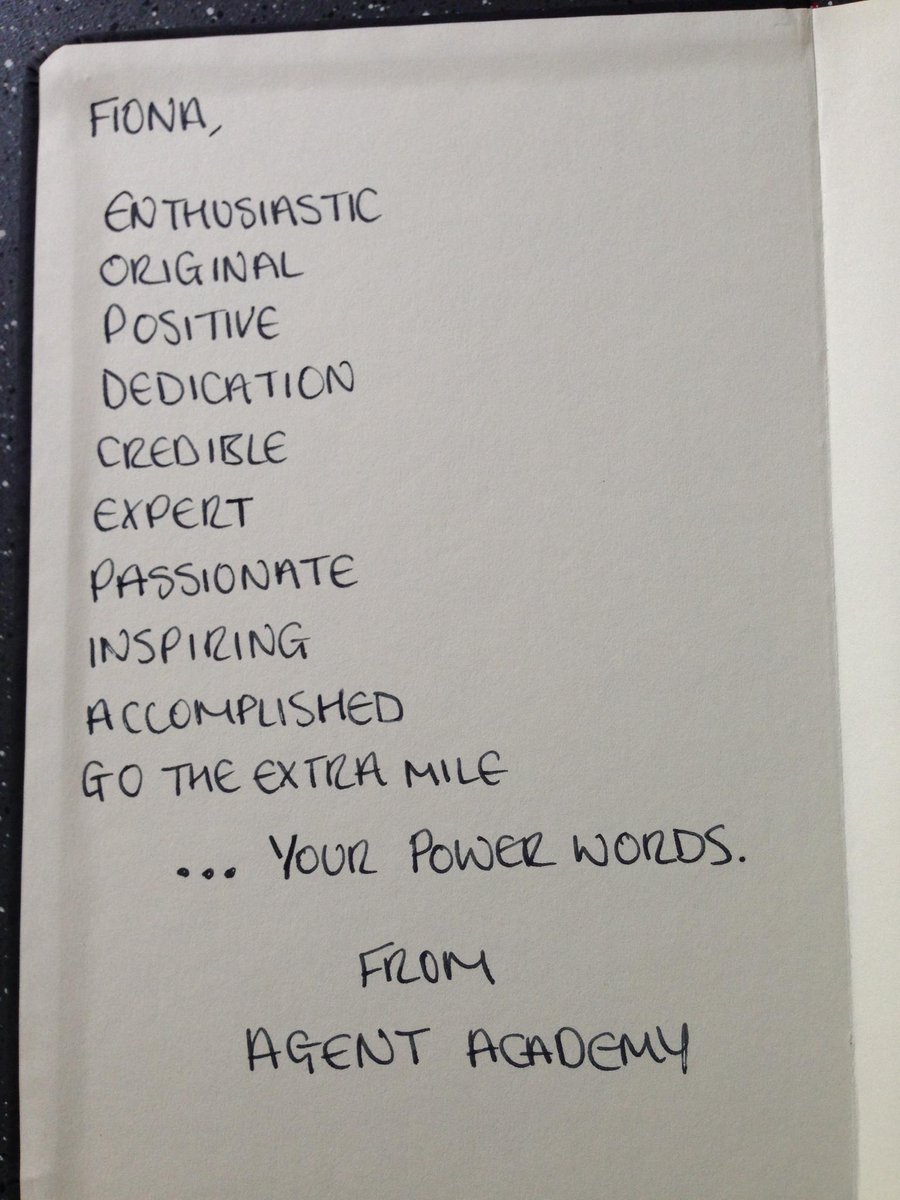 FIONA,
ENTHUSIASTIC
ORIGINAL
POSITIVE
DEDICATION
CREDIBLE
EXPERT
PASSIONATE
INSPIRING
ACCOMPLISHED
GO THE EXTRA MILE
... YOUR POWER WORDS.
FROM
AGENT ACADEMY